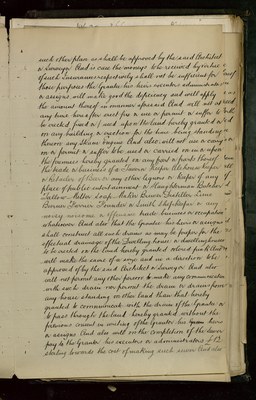 such other plan as shall be approved by the said Architect
or Surveyor And in case the moneys to be received by virtue
of such Insurances respectively shall not be sufficient for
those purposes the Grantee his heirs executors administrators
or assigns will make good the deficiency and will apply
the amount thereof in manner aforesaid And will not at
any time hereafter erect for a use or permit or suffer to
be erected fixed or used upon the land hereby granted or
on any building or erection for the time being standing
thereon any Steam Engine And also will not use or carry on
or permit or suffer to be used or carried on in or upon
the premises hereby granted or any part or parts thereof
the trade or business of a Keeper Alehouse keeper
or Retailer of Beer or any other liquors or keeper of any
place of public entertainment or Slaughterman Butcher
Tallow Melter Soap Maker Brewer Distiller Lime
Burner Farrier Founder or Smith Shopkeeper or any
noisy noisome or offensive trade business or occupation
whatsoever And also that the Grantee his heirs or assigns
shall construct all such drains as may be proper for the
effectual drainage of the Dwellinghouse or dwellinghouses
to be erected on the land hereby granted and
will make the same of a size and in a direction to be
approved of by the said Architect or Surveyor And also
will not permit any other person to make any communication
with such drain nor permit the drain or drains from
any house standing on other land than that hereby
granted to communicate with the drain of the Grantee or
to pass through the land hereby granted without the
previous consent in writing of the Grantor his heirs
or assigns And also will on the completion of the sewer
pay to the Grantor his executors or administrators
sterling towards the cost of making such sewer And also